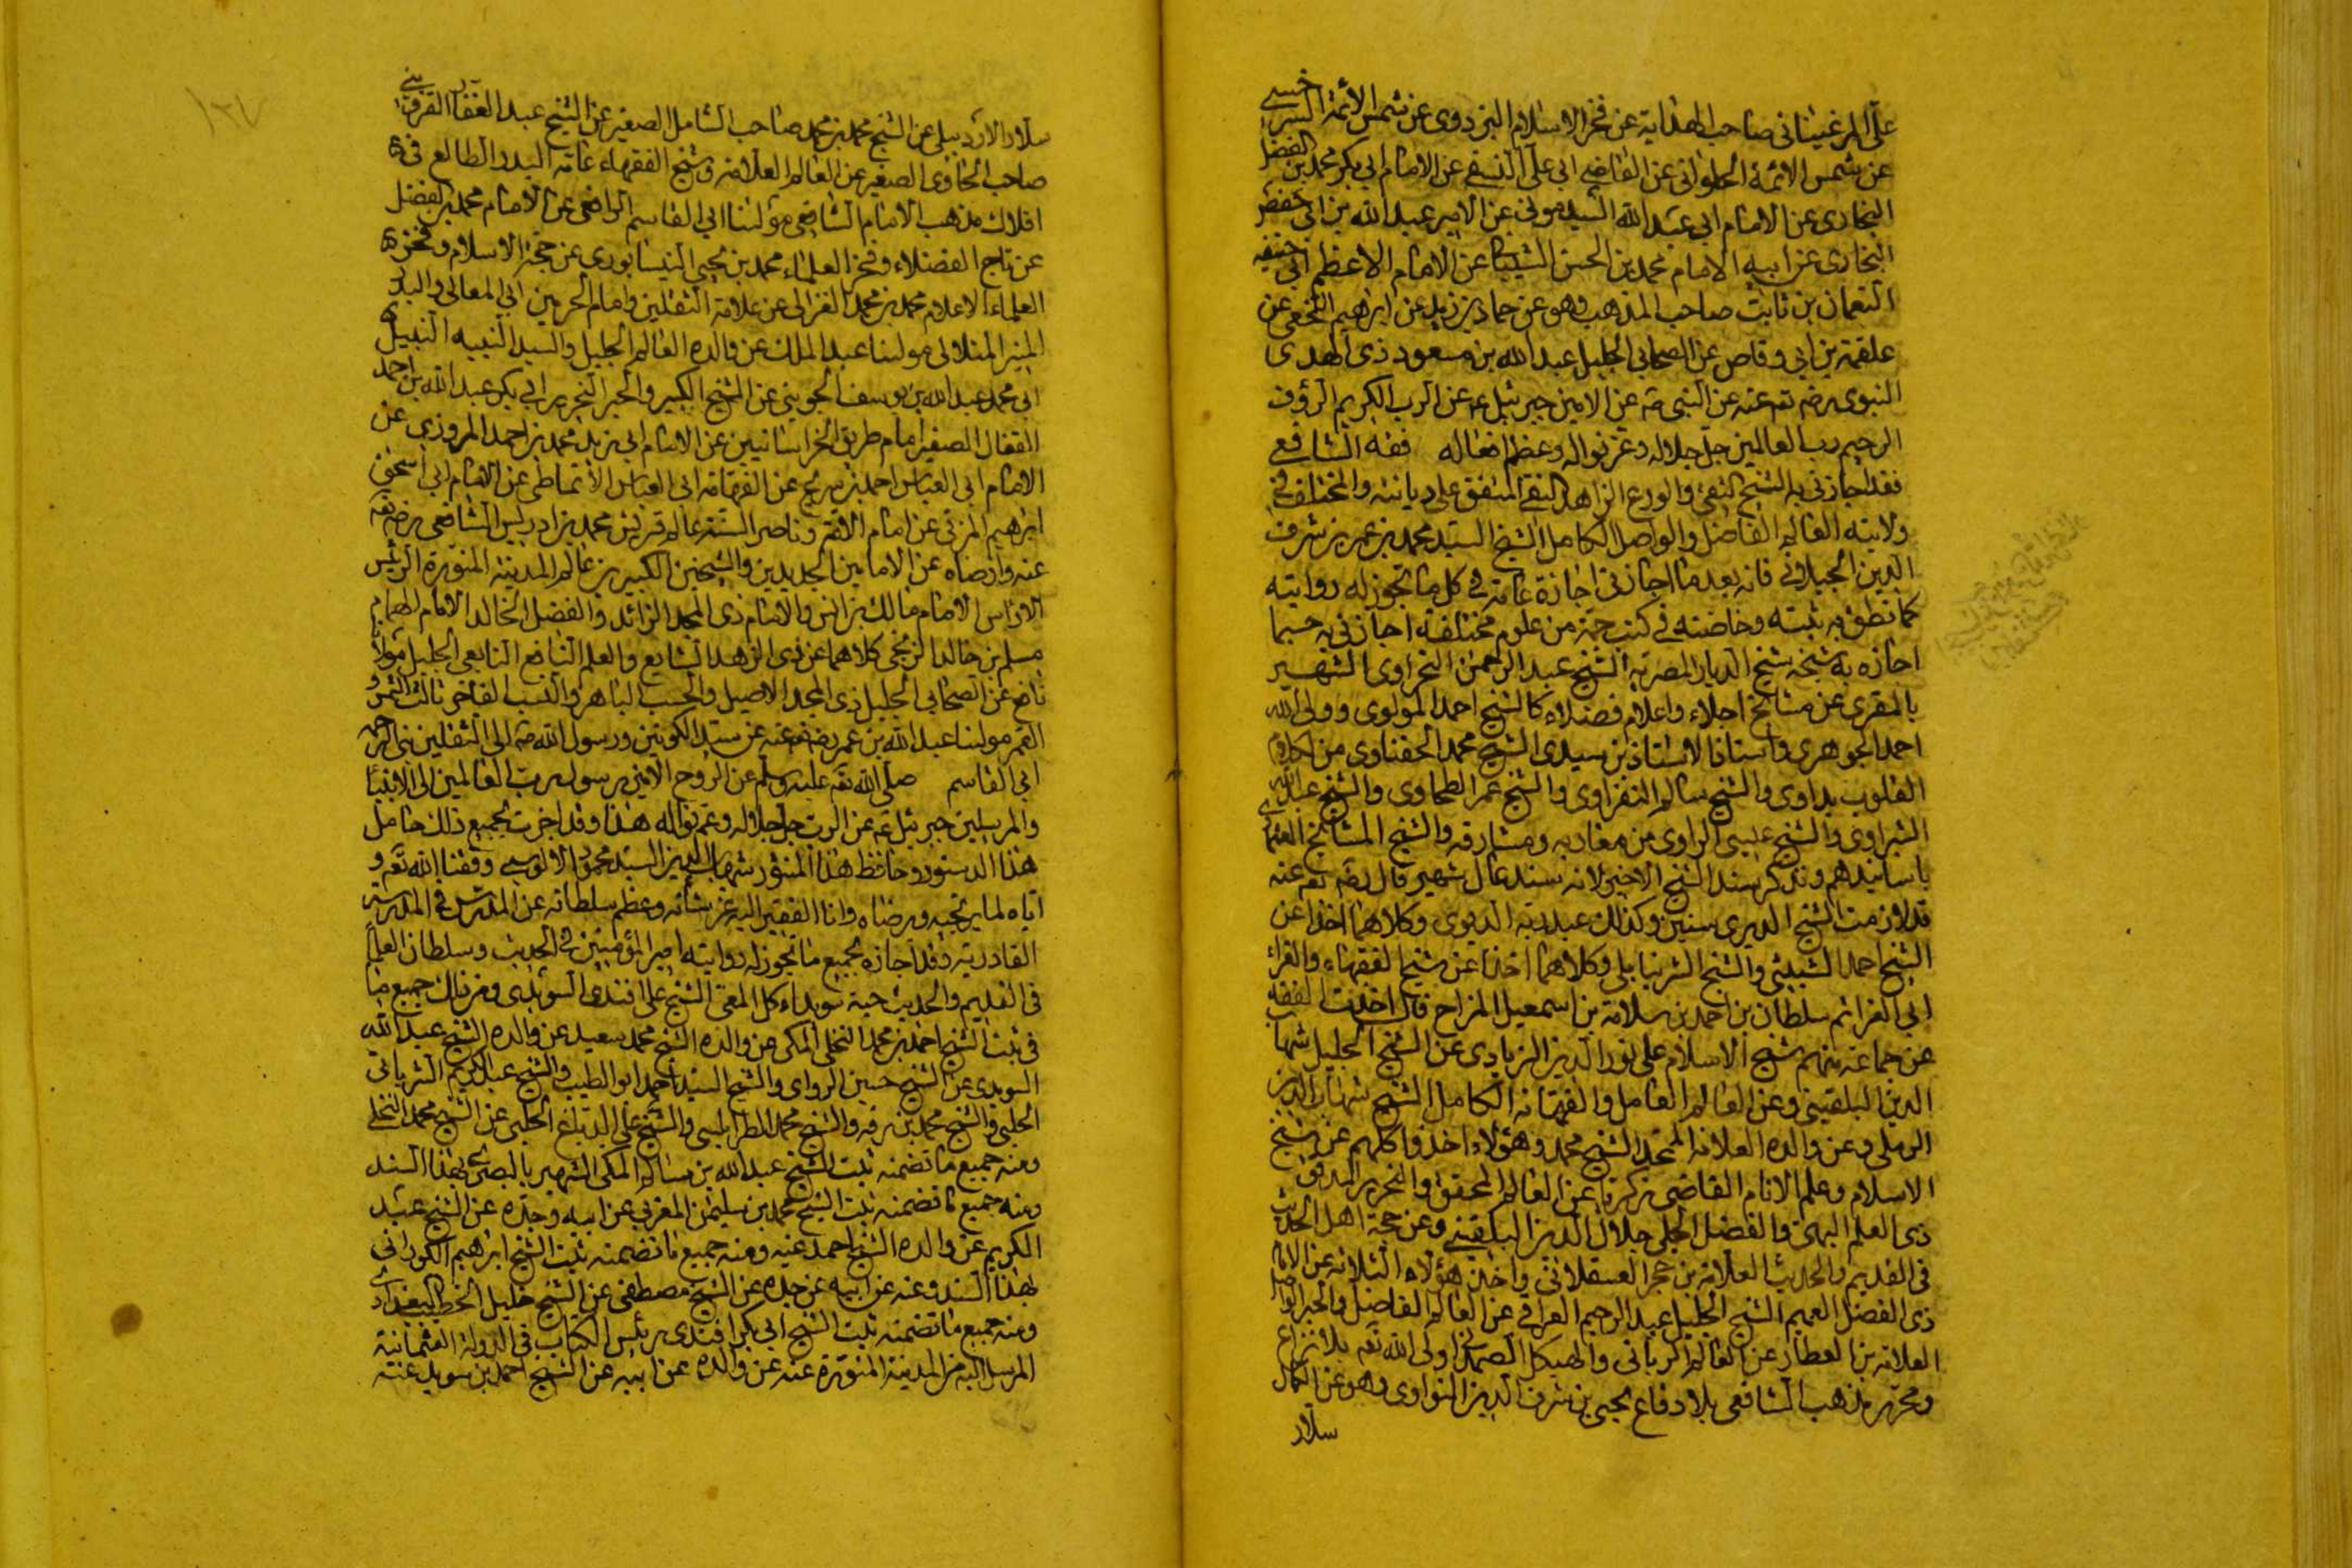 على المرغيناني صاحب الهداية عن فخر الاسلام البزدوي عن شمس الأئمة السرخسي
عن شمس الائمة الحلواني عن القاضي ابي على النسفي عن الامام ابي بكر محمد بن الفضل
البخاري عن الامام ابي عبد الله السيدموني عن الامير عبد الله بن ابي حفص
البخاري عن ابيه الامام محمد بن الحسن الشيباني عن الامام الاعظم ابي حنيفة
النعمان بن ثابت صاحب المذهب وهو عن حماد بن زيد عن ابرهيم النخعي عن
علقمة بن ابي وقاص عن الصحابي الجليل عبد الله بن مسعود ذى الهدى
النبوى رضه تعه عنه عن النبي صه عن الامين جبرئيل عه عن الرب الكريم الرؤف
الرحيم رب العالمين جل جلاله وعز نواله وعظم افعاله فقه الشافعي
فقد اجازني به الشيخ التقي والورع الزاهد النقي المتفق على ديانته والمختلف في
ولايته العالم الفاضل والواصل الكامل الشيخ السيد محمد بن عمر بن شرف
الدين الجيلاني فانه بعد ما اجازني اجازة عامة في كل ما تجوز له روايته
كما نطق به ثبته وخاصته في كتب جمة من علوم مختلفة اجازني به حسبما
اجازه به شيخه شيخ الديار المصرية الشيخ عبد الرحمن النحراوى الشهير
بالمقرى عن مشائخ اجلاء واعلام فضلاء كالشيخ احمد المولوى وولى الله
احمد الجوهرى واستاذ الاستاذين سيدى الشيخ محمد الحفناوى من
القلوب يداوى والشيخ سالم النفراوى والشيخ عمر الطحاوى والشيخ عبد الله
الشبراوى والشيخ عيسى البراوى من مغاربه ومشارقه والشيخ المشائخ
باسانيدهم ونذكر سند الشيخ الاخير لانه سند عال شهير قال رضه تعه عنه
قد لازمت الشيخ الديرى سنين وكذلك عبد ربه الديوى وكلاهما اخذا عن
الشيخ احمد البشبيشي والشيخ الشرنبابلى وكلاهما اخذا عن شيخ الفقهاء والقراء
ابي العزائم سلطان بن احمد بن سلامة بن اسمعيل المزاح قال اخذت الفقه
عن جماعة منهم شيخ الاسلام على نور الدين الزيادى عن الشيخ الجليل شهاب
الدين البلقيني وعن العالم العامل والفهامة الكامل الشيخ شهاب الدين
الرملى وعن والده العلامة الشيخ محمد وهؤلاء اخذوا كلهم عن شيخ
الاسلام وعلم الانام القاضي زكريا عن العالم المحقق والنحرير المدقق
ذى العلم البهي والفضل الجلى جلال الدين البلقيني وعن حجة اهل الحديث
في القديم والحديث العلامة بن حجر العسقلاني واخذ هؤلاء الثلاثة عن الامام
ذى الفضل العميم الشيخ الجليل عبد الرحيم العراقي عن العالم الفاضل والحبر الواصل
العلامة بن العطار عن العالم الرباني والهيكل الصمداني ولى الله تعه بلا نزاع
ومحرر مذهب الشافعي بلا دفاع يحيى بن شرف الدين النواوى وهو عن الكمال
سلار
سلار الاردبيلى عن الشيخ محمد بن محمد صاحب الشامل الصغير عن الشيخ عبد الغفار القزويني
صاحب الحاوى الصغير عن العالم العلامة وشيخ الفقهاء عامة البدر الطالع في
افلاك مذهب الامام الشافعي مولنا ابي القاسم الرافعي عن الامام محمد بن الفضل
عن تاج الفضلاء وفخر العلماء محمد بن يحيى النيسابورى عن حجة الاسلام وفخر
العلماء الاعلام محمد بن محمد الغزالى عن علامة الثقلين وامام الحرمين ابي المعالى والبدر
المنير المتلالى مولنا عبد الملك عن والده العالم الجليل والسيد النبيه النبيل
ابي محمد عبد الله بن يوسف الجويني عن الشيخ الكبير والحبر النحرير ابي بكر عبد الله بن احمد
القفال الصغير امام طريق الخراسانيين عن الامام ابي زيد محمد بن احمد المروزى عن
الامام ابي العباس احمد بن سريج عن الفهامة ابي العباس الانماطى عن الامام ابي اسحق
ابرهيم المزني عن امام الائمة وناصر السنة عالم قريش محمد بن ادريس الشافعي رضه تعه
عنه وارضاه عن الامامين الجليلين والشيخين الكبيرين عالم المدينة المنورة الرئيس
الامام مالك بن انس والامام ذى المجد الزائد والفضل الخالد الامام الهمام
مسلم بن خالد الزنجي كلاهما عن ذى الزهد الشايع والعلم النافع التابعي الجليل مولانا
نافع عن الصحابي الجليل ذى المجد الاصيل والحسب الباهر والنسب الفاخر ثالث الشمس و
القمر مولنا عبد الله بن عمر رضه تعه عنه عن سيد الكونين ورسول الله صه الى الثقلين
ابي القاسم صلى الله تعه عليه وسلم عن الروح الامين رسول رب العالمين الى الانبياء
والمرسلين جبرئيل عه عن الرب جل جلاله وعم نواله هذا وقد اجزت بجميع ذلك حامل
هذا الدستور وحافظ هذا المنشور شهاب الدين السيد محمود الالوسي وفقنا الله تعه و
اياه لما يرتجيه ويرضاه وانا الفقير اليه عز شانه وعظم سلطانه عن المدرس في المدرسة
القادرية وقد اجازه بجميع ما تجوز له روايته امير المؤمنين في الحديث وسلطان العلماء
في القديم والحديث حبة سويداء كل المعي الشيخ على افندى السويدى ومن ذلك جميع ما
في ثبت الشيخ احمد بن محمد النخلى المكى عن والده الشيخ محمد سعيد عن والده الشيخ عبد الله
السويدى عن الشيخ حسين الرواى والشيخ السيد احمد ابو الطيب والشيخ عبد الكريم الشرباتى
الحلبي والشيخ محمد بن والشيخ محمد الطرابلسي والشيخ على الدباغ الحلبي عن الشيخ محمد النخلى
ومنه جميع ما تضمنه ثبت الشيخ عبد الله بن سالم المكى الشهير بالبصرى بهذا السند
ومنه جميع ما تضمنه ثبت الشيخ محمد بن سليمن المغربي عن ابيه وجده عن الشيخ عبد
الكريم عن والده الشيخ احمد عنه ومنه جميع ما تضمنه ثبت الشيخ ابرهيم الكورانى
بهذا السند وعنه عن ابيه عن جده عن الشيخ مصطفى عن الشيخ خليل الخطيب البغدادى
ومنه جميع ما تضمنه ثبت الشيخ ابي بكر افندى رئيس الكتاب في الدولة العثمانية
المرسل اليه من المدينة المنورة عنه عن والده عن ابيه عن الشيخ احمد بن سويد عنه
١٢٧